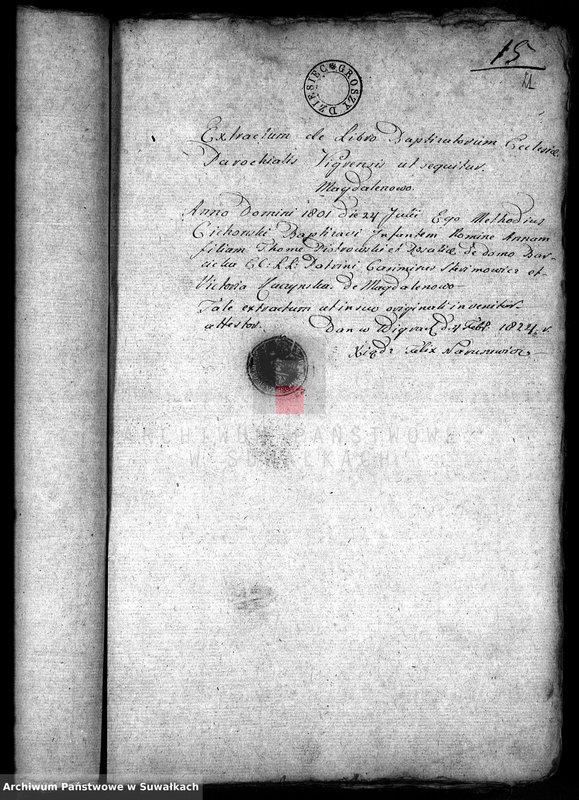 15
11
DZIESIĘC GROSZY
Extractum de Libro Baptisatorum Ecclesiæ
Parochialis Vigrensis ut sequitur.
Magdalenowo.
Anno Domini 1801 die 24 Julii Ego Methodius
Cichowski Baptisavi Infantem Nomine Annam
filiam Thomæ Piotrowski et Rosaliæ de domo
C: L: Patrini Casimirus et
Victoria de Magdalenowo
Tale extractum ut in suo originali invenitur
attestor. Dan w d. 4 Febr. 1824 r.
Xiądz Felix Naruszewicz
ARCHIWUM PAŃSTWOWE
W SUWAŁKACH
Archiwum Państwowe w Suwałkach